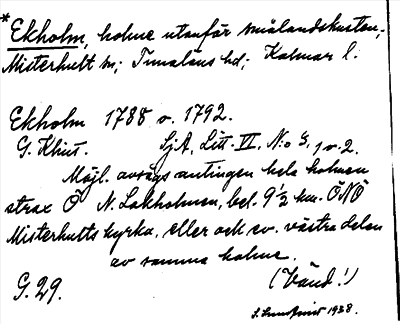 * Ekholm, holme utanför smålandskusten,
Misterhult sn; Tunaläns hd; Kalmar l.
Ekholm 1788 o. 1792.
G. Klint. SjA, Litt. VI, N:o 3, 1 o. 2.
Möjl. avsågs antingen hela holmen
strax Ö N. Lakholmen, bel. 9 1/2 km. ÖNÖ
Misterhults kyrka, eller ock ev. västra delen
av samma holme.
(Vänd!)
G. 29.
1938.